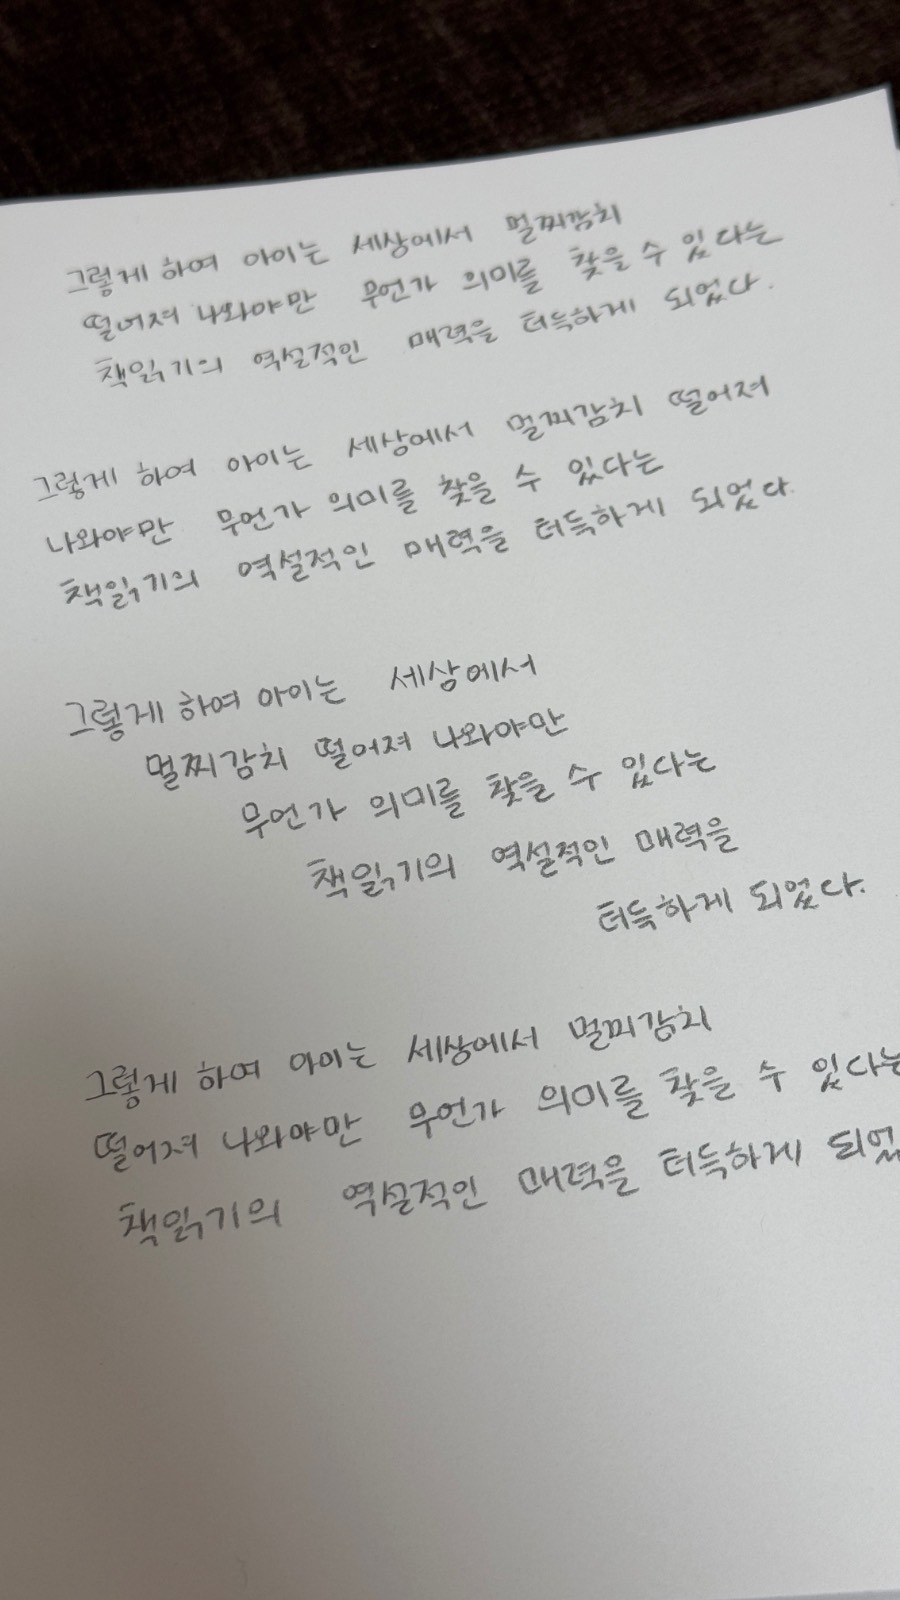 그렇게 하여 아이는 세상에서 멀찌감치
떨어져 나와야만 무언가 의미를 찾을 수 있다는
책읽기의 역설적인 매력을 터득하게 되었다.
그렇게 하여 아이는 세상에서 멀찌감치 떨어져
나와야만 무언가 의미를 찾을 수 있다는
책읽기의 역설적인 매력을 터득하게 되었다.
그렇게 하여 아이는 세상에서
멀찌감치 떨어져 나와야만
무언가 의미를 찾을 수 있다는
책읽기의 역설적인 매력을
터득하게 되었다.
그렇게 하여 아이는 세상에서 멀찌감치
떨어져 나와야만 무언가 의미를 찾을 수 있다는
책읽기의 역설적인 매력을 터득하게 되었